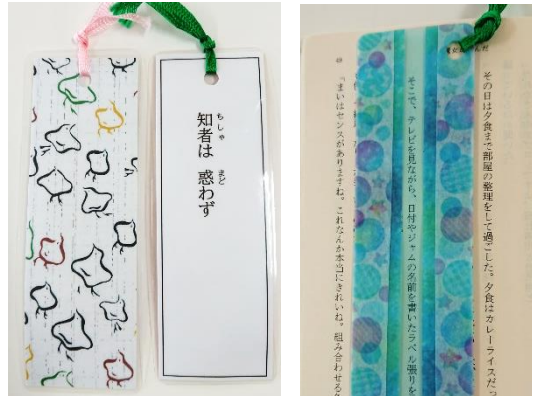 知者は 惑わず
ちしゃ
まど
その日は夕食まで部屋の整理をして過ごした。夕食はカレーライスだっ
そこで、テレビを見ながら、日付やジャムの名前を書いたラベル張りを
「まいはセンスがありますね。これなんか本当にきれいね。組み合わせる